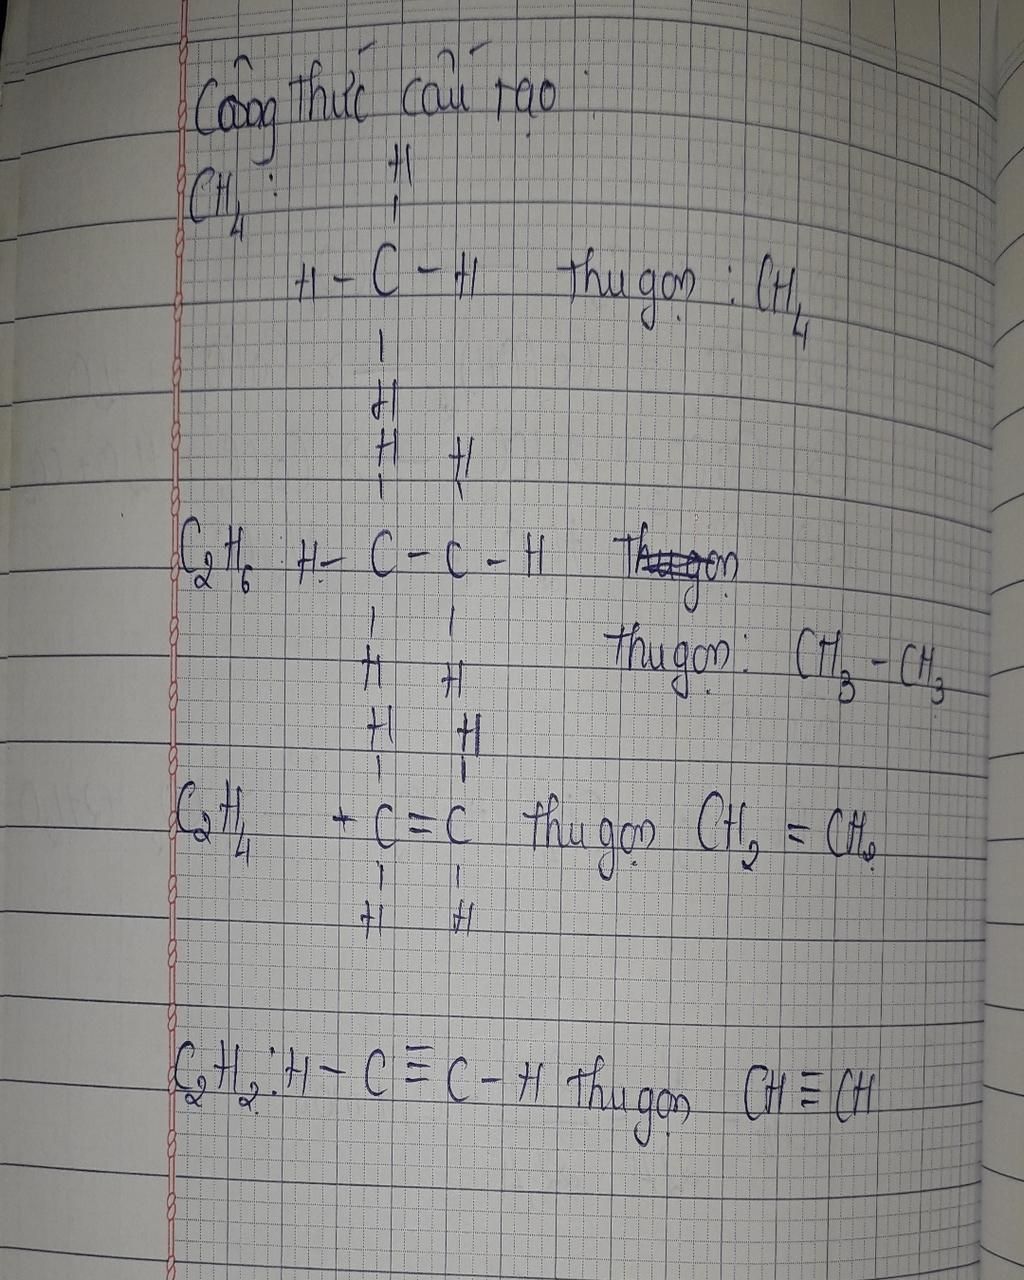 Công thức cấu tạo :
CH4 :
H
|
H - C - H thu gọn : CH4
|
H
H H
| |
C2H6 H - C - C - H
| |
thu gọn : CH3 - CH3
H H
H H
| |
C2H4 + C = C thu gọn CH2 = CH2
| |
H H
C2H2 : H - C ≡ C - H thu gọn CH ≡ CH